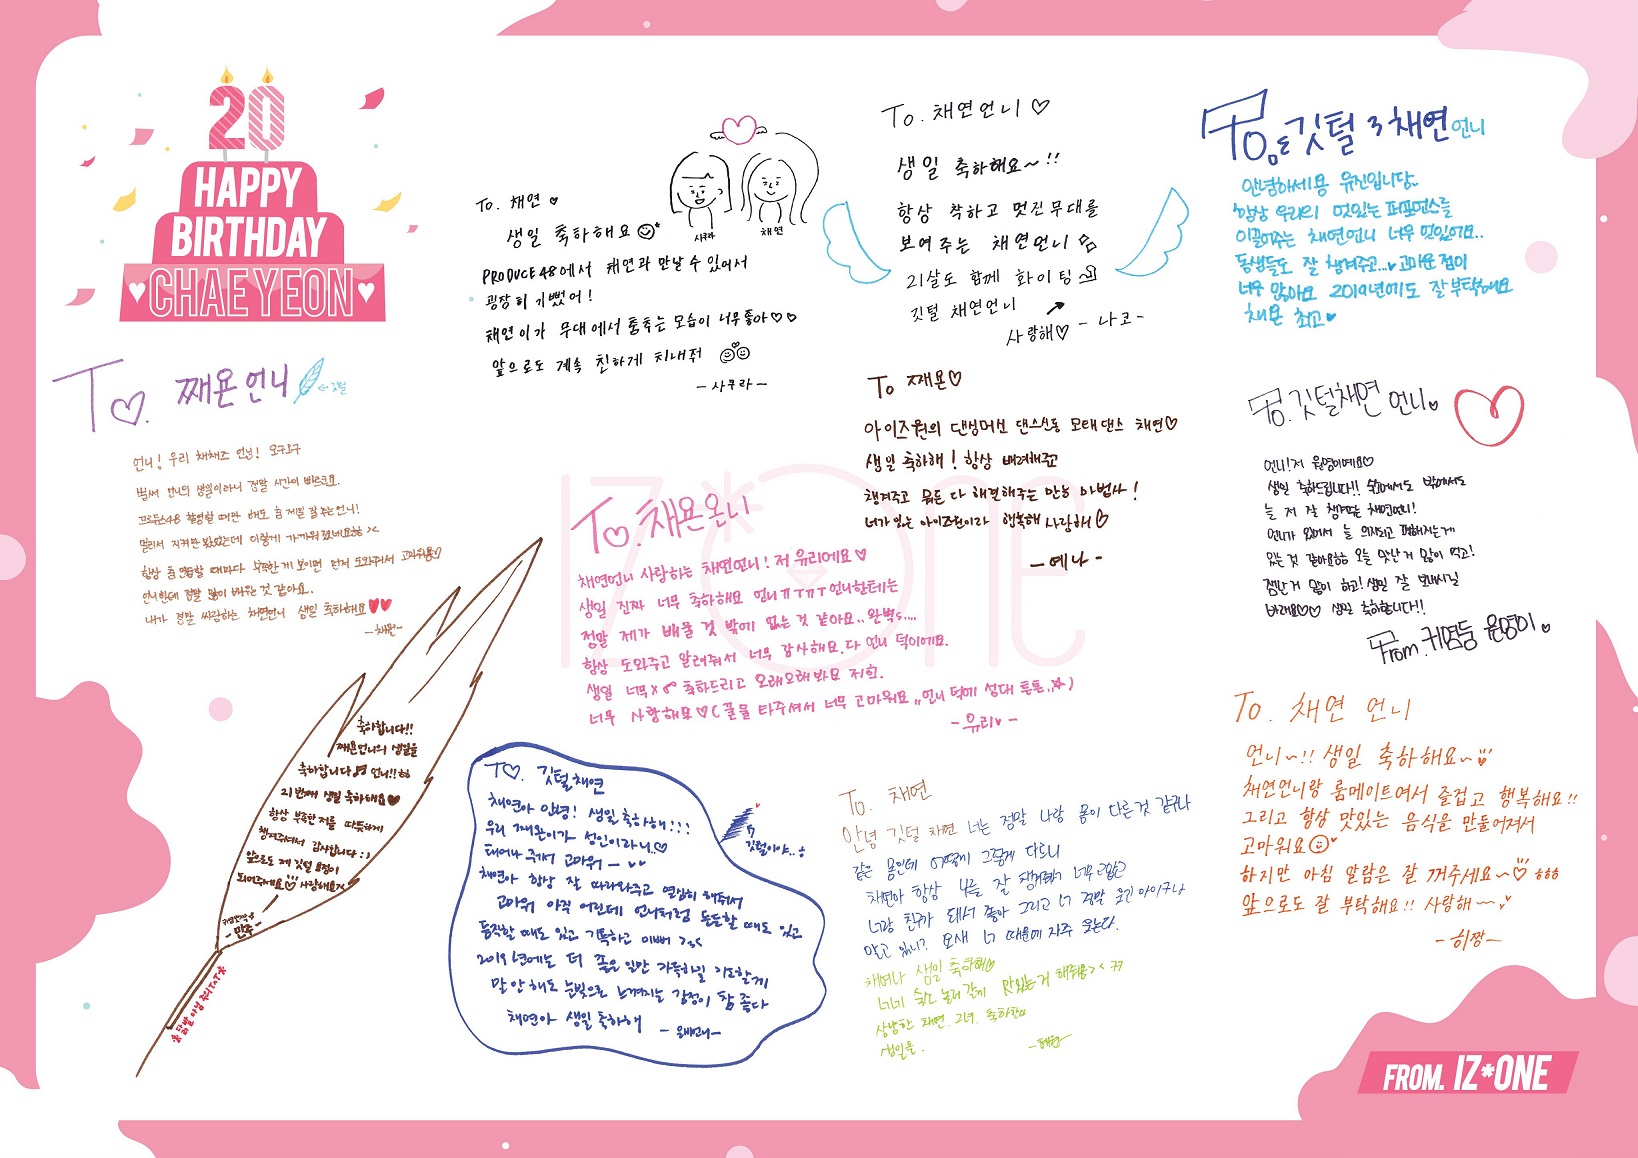 20
HAPPY
BIRTHDAY
CHAEYEON
To. 채연
생일 축하해요
PRODUCE48에서 채연과 만날 수 있어서
굉장히 기뻤어!
채연이가 무대에서 춤추는 모습이 너무좋아♡♡
앞으로도 계속 친하게 지내줘
-사쿠라-
사쿠라
채연
To. 채연언니♡
생일 축하해요~!!
항상 착하고 멋진무대를
보여주는 채연언니
21살도 함께 화이팅
깃털 채연언니
사랑해♡ -나코-
To. 깃털 채연언니
안녕하세용 유진입니당
항상 우리의 멋있는 퍼포먼스를
이끌어주는 채연언니 너무 멋있어요..
동생들도 잘 챙겨주고... 고마운점이
너무 많아요 2019년에도 잘부탁해요
채욘 최고♥
To. 째욘언니
←깃털
언니! 우리 채채즈 언니!
벌써 언니의 생일이라니 정말 시간이 빠르고요.
프로듀스48 촬영할 때만 해도 춤 제일 잘 추는 언니!
멀리서 지켜만 봤었는데 이렇게 가까워졌네요ㅎㅎ ><
항상 춤 연습할 때마다 부족한 게 보이면 먼저 도와줘서 고마워용♡
언니한테 정말 많이 배우는 것 같아요.
내가 정말 싸랑하는 채연언니 생일 축하해요♥♥
-채원-
To 째욘♡
아이즈원의 댄싱머신 댄스신동 모태댄스 채연♡
생일 축하해! 항상 배려해주고
챙겨주고 뭐든 다 해결해주는 만능 마법사!
너가 있는 아이즈원이라 행복해 사랑해♡
-예나-
To. 깃털채연 언니
언니! 저 원영이에요♡
생일 축하드립니다!! 숙소에서도 밖에서도
늘 저 잘 챙겨주는 채연언니!
언니가 있어서 늘 의지되고 편해지는게
있는 것 같아요ㅎㅎ 오늘 맛난 거 많이 먹고!
잼난 거 많이 하고! 생일 잘 보내시길
바래요♡♡ 생일 축하합니다!!
From. 귀염둥 원영이
IZ*ONE
To. 채욘온니
채연언니 사랑하는 채연언니! 저 유리에요♥
생일 진짜 너무 축하해요 언니ㅠㅠㅠ 언니한테는
정말 제가 배울 것 밖에 없는 것 같아요.. 완벽s....
항상 도와주고 알려줘서 너무 감사해요. 다 언니 덕이에요.
생일 너무x 축하드리고 오래오래봐요 저희.
너무 사랑해요♡ (꿀물 타주셔서 너무 고마워요,, 언니 덕에 성대 튼튼..☆)
-유리♥-
축하합니다!!
째욘언니의 생일을
축하합니다♬ 언니!!ㅎㅎ
21번째 생일 축하해요♥
항상 부족한 저를 따듯하게
챙겨주셔서 감사합니다 :)
앞으로도 제 깃털 요정이
되어주세요♡ 사랑해요
-민주-
To. 깃털채연
채연아 안녕! 생일축하해!!!
우리 째욘이가 성인이라니..♡
태어나 줘서 고마워~
채연아 항상 잘 따라와주고 열심히 해줘서
고마워 아직 어린데 언니처럼 든든할 때도 있고
듬직할 때도 있고 기특하고 이뻐 >3<
2019년에는 더 좋은 일만 가득하길 기도할게
말 안 해도 눈빛으로 느껴지는 감정이 참 좋다
채연아 생일 축하해
-은비언니-
깃털이야..
To. 채연
안녕 깃털 채연 너는 정말 나랑 몸이 다른 것 같구나
같은 몸인데 어떻게 그렇게 다르니
채연아 항상 나를 잘 챙겨줘서 너무 고맙고
너랑 친구가 돼서 좋아 그리고 너 정말 웃긴 아이구나
알고 있니? 요새 너 때문에 자주 웃는다.
채연아 생일 축하해
너네 숙소 놀러갈게 맛있는 거 해줘용><ㄲㄲ
상냥한 채연. 그녀. 축하한다
생일을.
To. 채연 언니
언니~!! 생일 축하해요~
채연언니랑 룸메이트여서 즐겁고 행복해요!!
그리고 항상 맛있는 음식을 만들어줘서
고마워요
하지만 아침 알람은 잘 꺼주세요~♡ ㅎㅎㅎ
앞으로도 잘 부탁해요!! 사랑해~
-히짱-
FROM. IZ*ONE